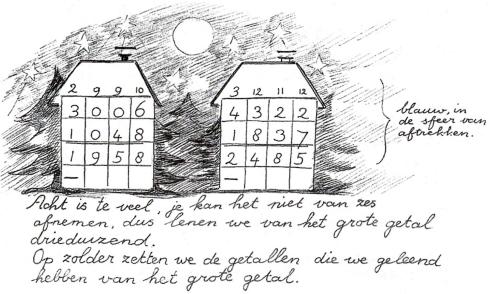 2 9 9 10
3 0 0 6
1 0 4 8
1 9 5 8
3 12 11 12
4 3 2 2
1 8 3 7
2 4 8 5
blauw, in
de sfeer van
aftrekken.
Acht is te veel, je kan het niet van zes
afnemen, dus lenen we van het grote getal
drieduizend.
Op zolder zetten we de getallen die we geleend
hebben van het grote getal.